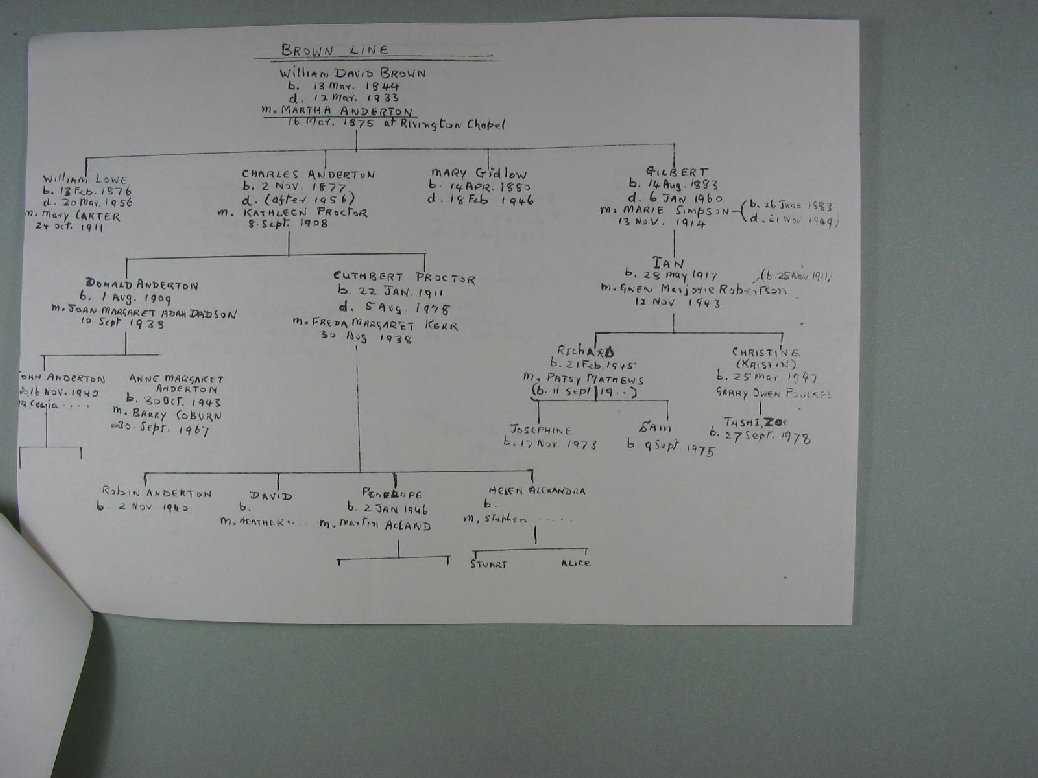 BROWN LINE
William DAVID BROWN
b. 13 Mar. 1844
d. 12 Mar. 1933
m. MARTHA ANDERTON
16 Mar. 1875 at Rivington Chapel
William LOWE
b. 13 Feb. 1876
d. 20 Mar. 1956
m. Mary CARTER
24 Oct. 1911
CHARLES ANDERTON
b. 2 NOV. 1877
d. (after 1956)
m. KATHLEEN PROCTOR
8. Sept. 1908
MARY Gidlow
b. 14 APR. 1880
d. 18 Feb 1946
GILBERT
b. 14 Aug. 1883
d. 6 JAN 1960
m. MARIE SIMPSON
13 NOV. 1914
(b. 26 June 1883
d. 21 Nov 1949)
DONALD ANDERTON
b. 1 Aug. 1909
m. JOAN MARGARET ADAH DADSON
10 Sept 1938
CUTHBERT PROCTOR
b. 22 JAN. 1911
d. 5 Aug. 1978
m. FREDA MARGARET KERR
30 Aug 1938
IAN
b. 28 May 1917
m. GWEN Marjorie Robertson
(b. 25 Nov 1911)
12 NOV 1943
OHN ANDERTON
16 NOV. 1940
ANNE MARGARET
ANDERTON
b. 30 OCT. 1943
m. BARRY COBURN
30. Sept. 1967
RICHARD
b. 21 Feb. 1945
m. PATSY MATHEWS
(b. 11 Sept 19..)
CHRISTINE
(KRISTIN)
b. 25 Mar. 1947
GARRY OWEN FOULKES
JOSEPHINE
b. 17 Nov. 1973
SAM
b 9 Sept. 1975
TASHI, ZOE
b. 27 Sept. 1978
Robin ANDERTON
b. 2 NOV 1940
DAVID
b.
m. HEATHER...
PENELOPE
b. 2 JAN 1946
m. Martin ACLAND
HELEN ALEXANDRA
b.
m, Stephen ......
STUART
ALICE